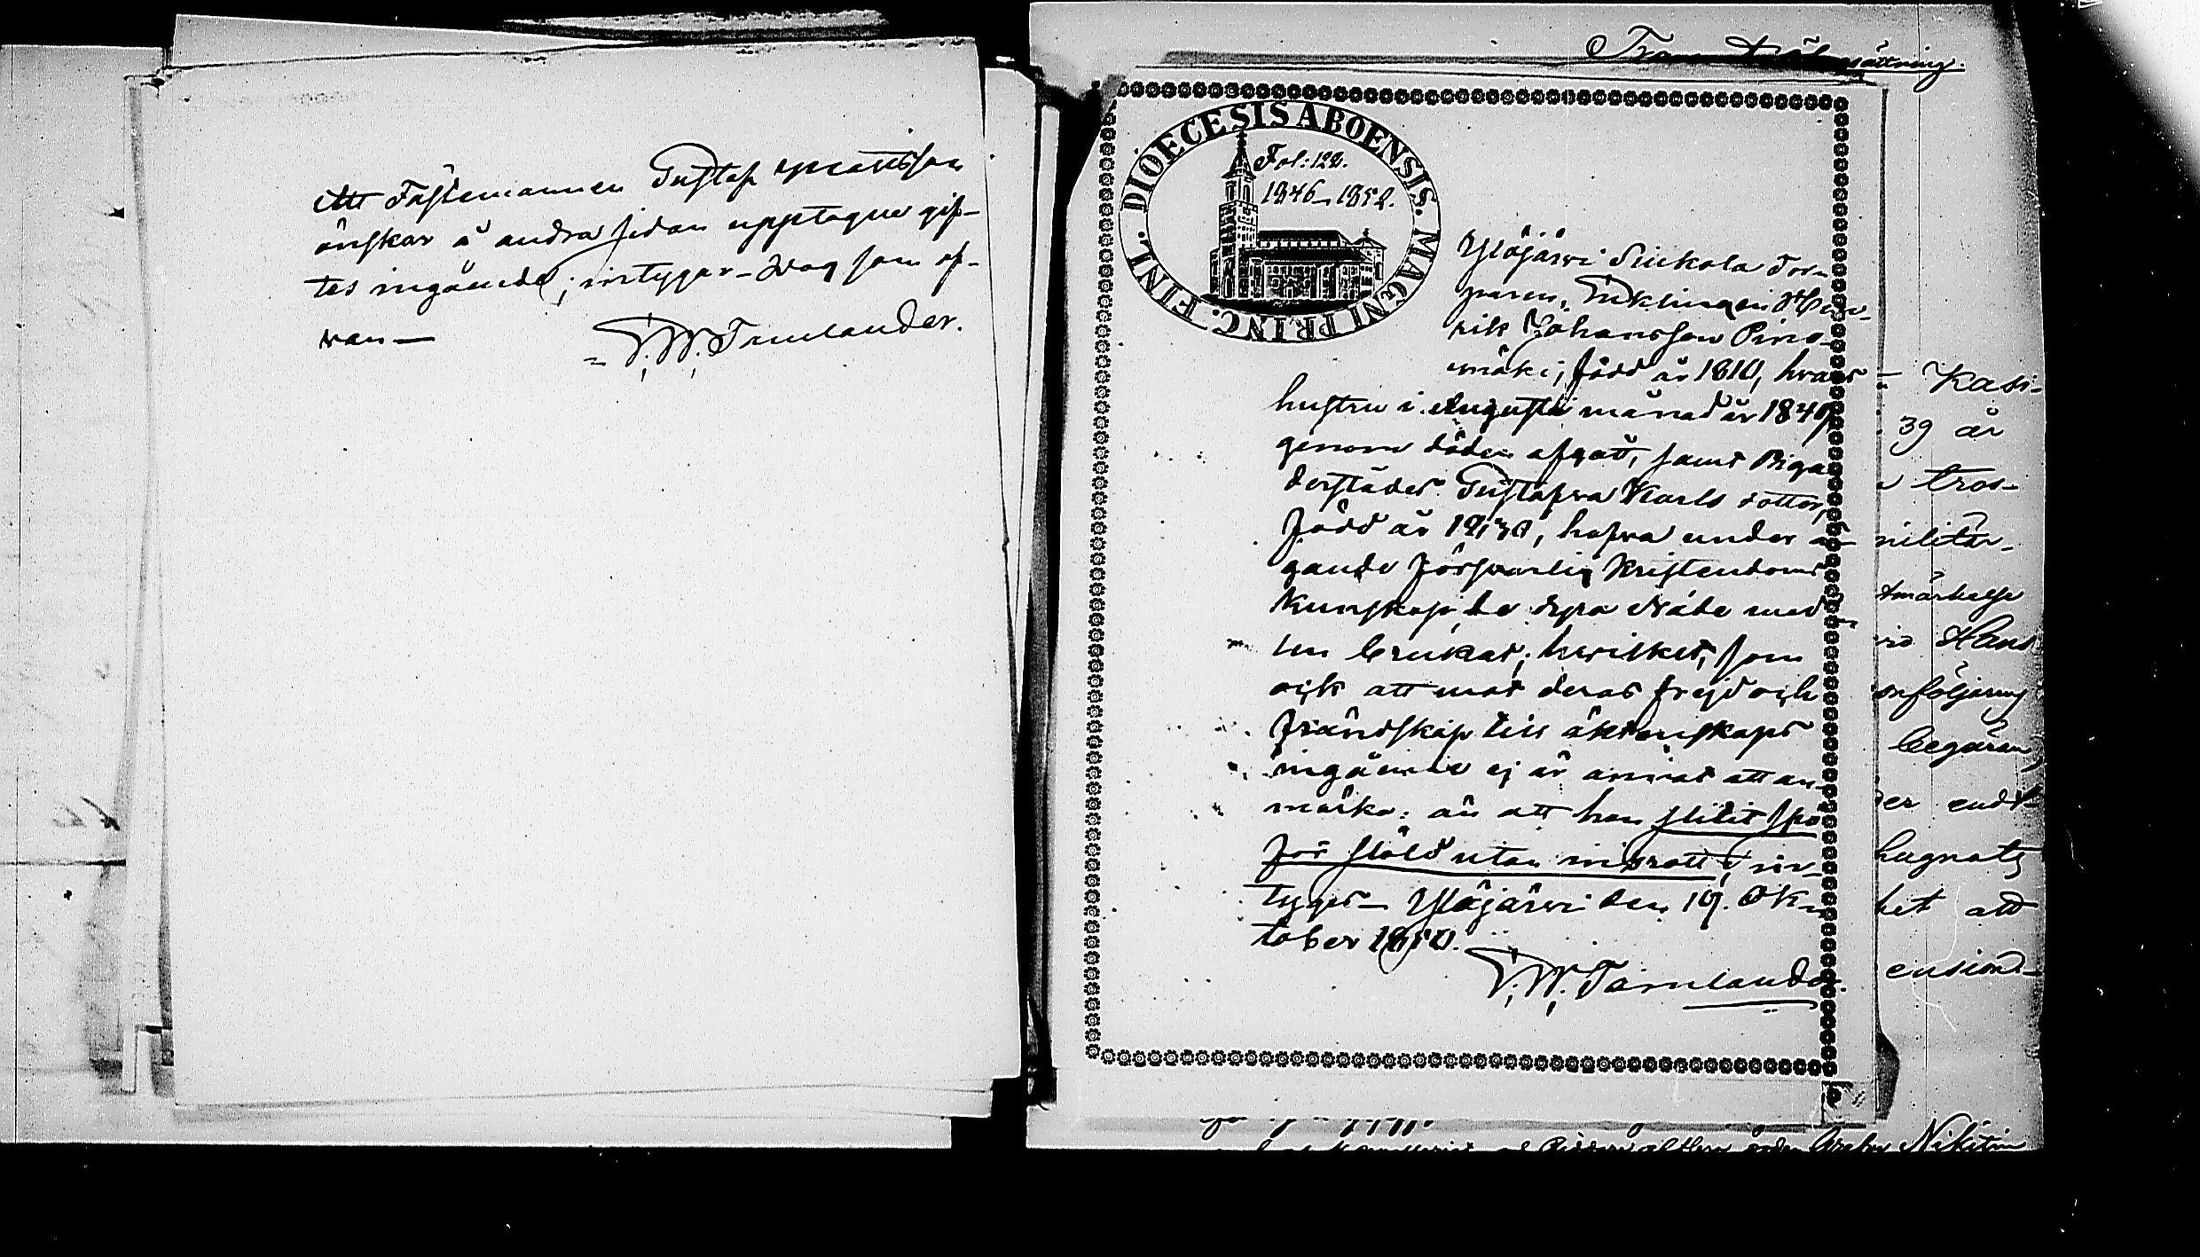 Att Fästemannen Gustaf Mattsson
önskar å andra sidan upptagne gif-
tes ingående, intygar - Dag som of-
van —
V. W. Ternlander.
Öfversättning.
DIOECESIS ABOENSIS. MAGNI PRINC. FINL.
Fol: 122.
1846–1852.
Ylöjärvi Siukola Tor-
paren, Enklingen Hen-
rik Johansson Piro-
mäki, född år 1810, hvars
hustru i Augusti månad år 184
genom döden afgått, samt Pigan
derstädes Gustafva Karls dotter,
född år 1830, hafva under
gande försvarlig Kristendoms
Kunskap, de dyra Nåde med-
len brukat; hvilket, som
ock att mot deras frejd och
frändskap till äktenskaps
ingående ej är annat att an-
märka: än att han slitit spö
för stöld utan inbrott, in-
tygas — Ylöjärvi den 19. Ok-
tober 1850.
V. W. Ternlander.
Kasi-
39 år
tros-
militär-
tmärkelse
Hans
onföljaring
begäran,
er endt
hugnats
het att
ension-
Nikitin